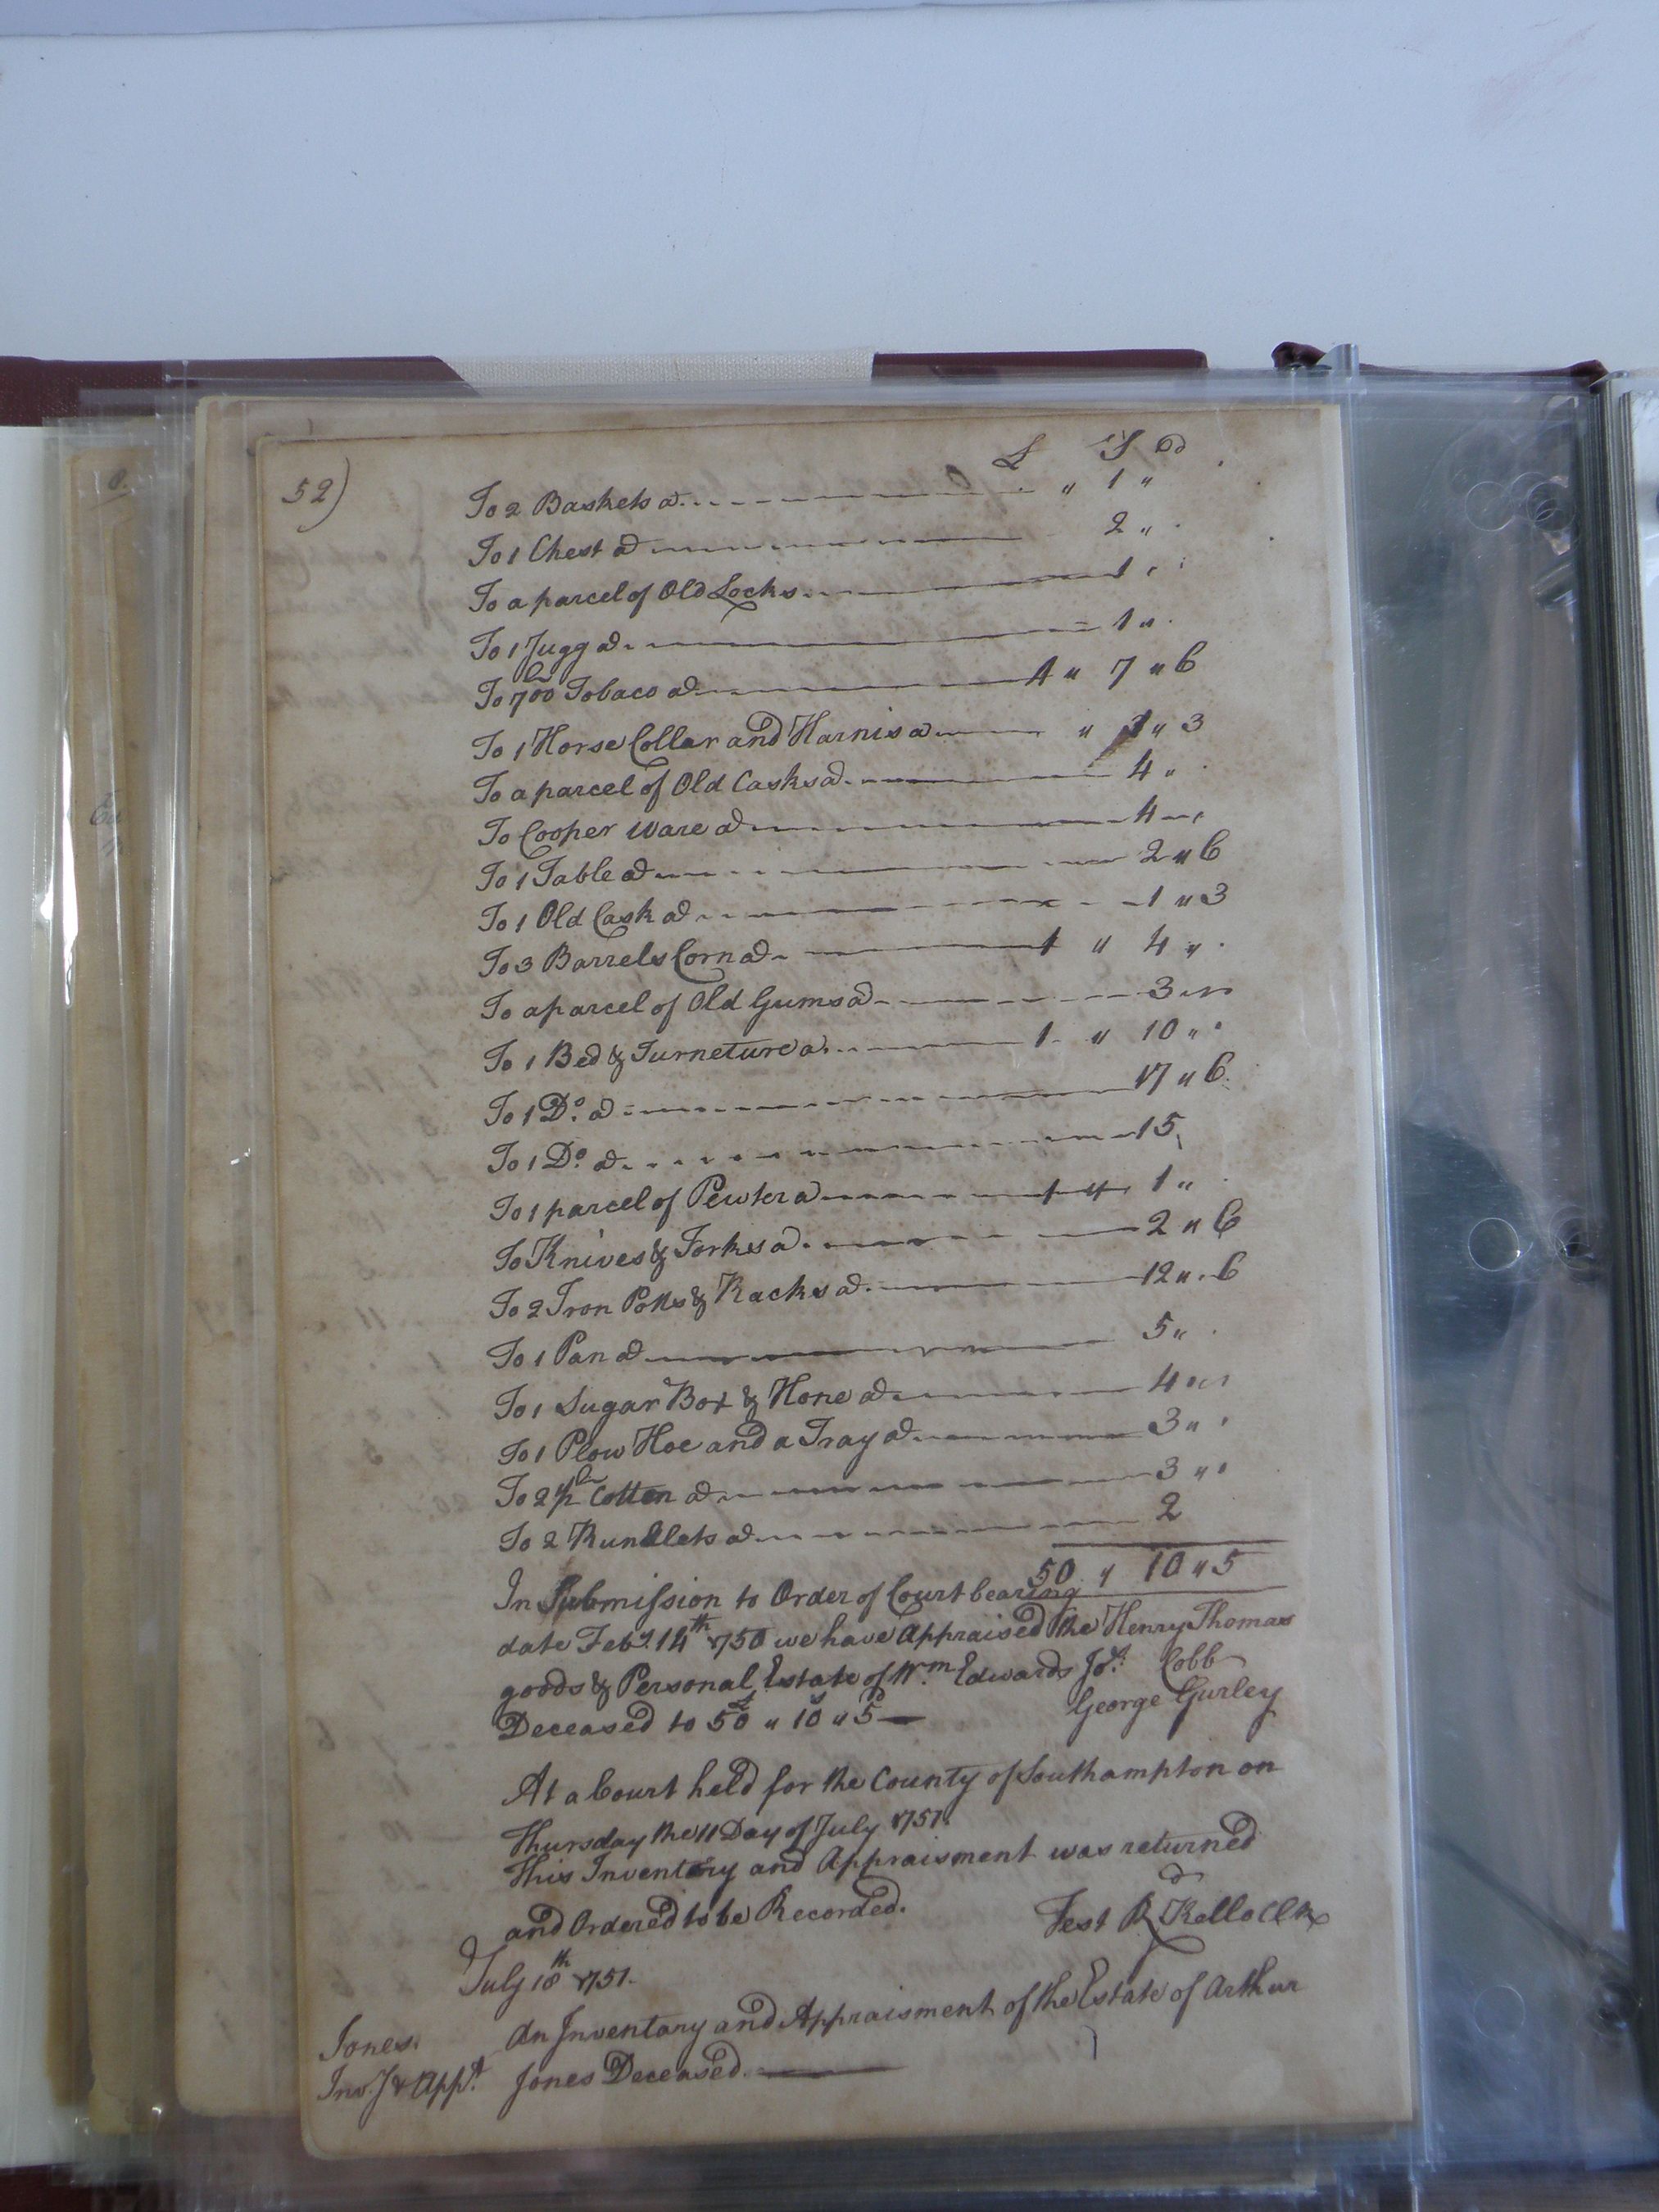 52)
£ S D
To 2 Baskets a " 1 "
To 1 Chest a 2 "
To a parcel of Old Locks 1 "
To 1 Jugg a 1 "
To 700 lb Tobaco a 4 " 7 " 6
To 1 Horse Collar and Harnis a " " 3
To a parcel of Old Casks a 4 "
To Cooper Ware a 4 "
To 1 Table a 2 " 6
To 1 Old Cask a 1 " 3
To 3 Barrels Corn a 1 " 4 "
To a parcel of Old Gums a 3 "
To 1 Bed & Furneture a 1 " 10 "
To 1 Do. a 17 " 6
To 1 Do. a 15
To 1 parcel of Pewter a 1 " 1 "
To Knives & Forks a 2 " 6
To 2 Iron Potts & Racks a 12 " 6
To 1 Pan a 5 "
To 1 Sugar Box & Hone a 4 "
To 1 Plow Hoe and a Tray a 3 "
To 2 1/2 lb Cotton a 3 "
To 2 Rundlets a 2
50 " 10 " 5
In Submission to Order of Court bearing
date Feby. 14th 1750 we have Appraised the Henry Thomas
goods & Personal Estate of Wm. Edwards Cobb
Deceased to 50£ " 10s " 5d George Gurley
At a Court held for the County of Southampton on
Thursday the 11 Day of July 1751
This Inventory and Appraisment was returned
and Ordered to be Recorded.
Test R Kello Clk
July 18th 1751.
Jones. An Inventory and Appraisment of the Estate of Arthur
Invy & Appt. Jones Deceased.